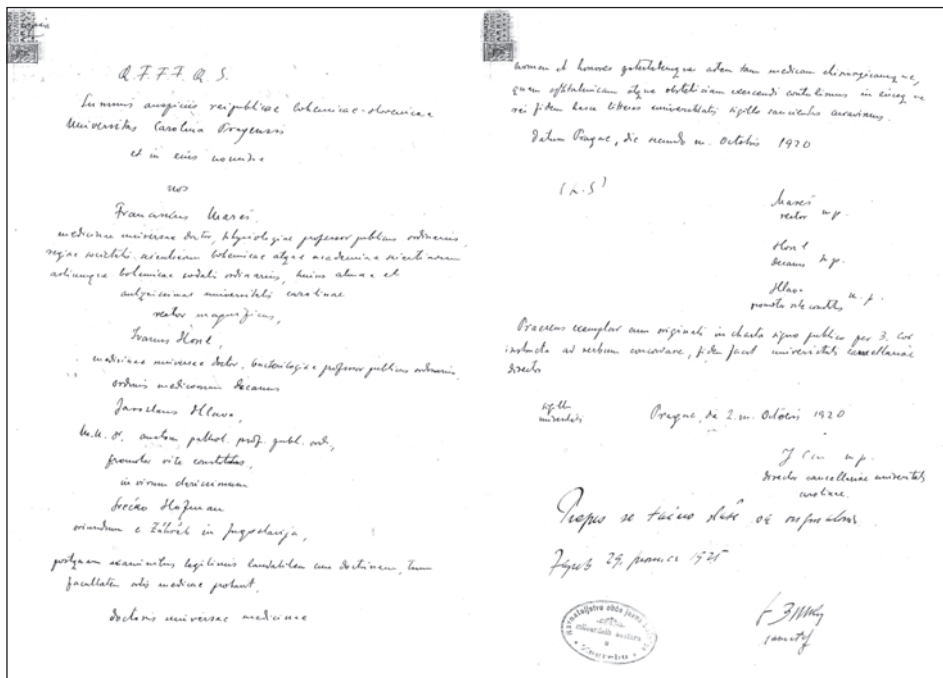 Q. F. F. F. Q. S.
Summis auspiciis reipublicae bohemicae-slovenicae
Universitas Carolina Pragensis
et in eius nomine
nos
Franciscus Mareš
medicinae universae doctor, physiologiae professor publicus ordinarius,
regiae societatis scientiarum bohemicae atque academiae scientiarum
artiumque bohemicae sodalis ordinarius, huius almae et
antiquissimae universitatis carolinae
rector magnificus,
Ivanus Honl,
medicinae universae doctor, bacteriologiae professor publicus ordinarius,
ordinis medicorum decanus
Jaroslaus Hlava,
M. U. Dr. anatom. pathol. prof. publ. ord.,
promotor rite constitutus,
in virum clarissimum
Srećko Hofman
oriundum e Zábřeb in Jugoslavija,
postquam examinibus legitimis laudabilem cum doctrinam, tum
facultatem artis medicae probavit,
doctoris universae medicinae
nomen et honores potestatemque artem tam medicam chirurgicamque,
quam ophtalmicam atque obstetriciam exercendi contulimus in eiusque
rei fidem hasce litteras universitatis sigillo sanciendas curavimus.
Datum Pragae, die secundo m. Octobris 1920
(L. S)
Mareš m. p.
rector
Honl m. p.
decanus
Hlava m. p.
promotor rite constitutus
Praesens exemplar cum originali in charta signo publico per 3. Cor
instructa ad verbum concordare, fidem facit universitatis cancellariae
director
sigillum
universitatis
Pragae, die 2. m. Octobris 1920
m. p.
director cancellariae universitatis
carolinae.
Prepis se tačno slaže sa originalom.
Zagreb 29. 1925
Zagrebu